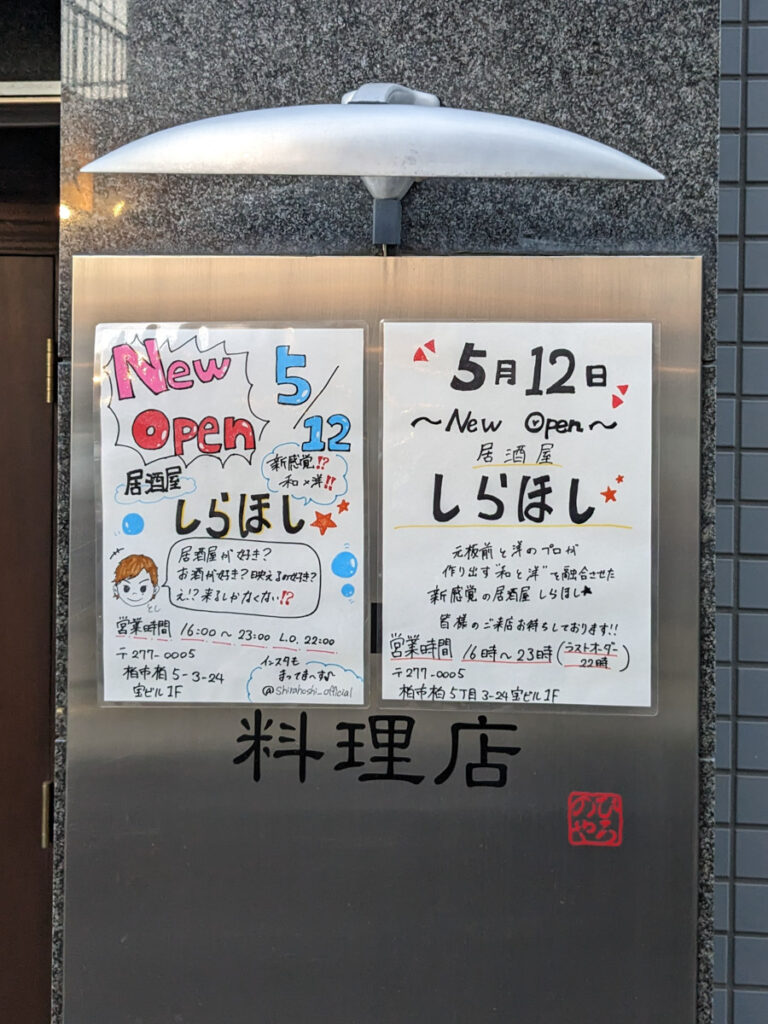 New
Open
5/12
新感覚!?
和×洋!!
居酒屋
しらほし
居酒屋が好き?
お酒が好き?映えるの好き?
え!?来るしかなくない!?
とし
営業時間 16:00〜23:00 L.O. 22:00
〒277-0005
柏市柏5-3-24
宝ビル1F
インスタも
まってま〜す♪
@shirahoshi_official
5月12日
〜New Open〜
居酒屋
しらほし
元板前と洋のプロが
作り出す"和と洋"を融合させた
新感覚の居酒屋しらほし★
皆様のご来店お待ちしております!!
営業時間 16時〜23時(ラストオーダー
22時)
〒277-0005
柏市柏5丁目3-24宝ビル1F
料理店